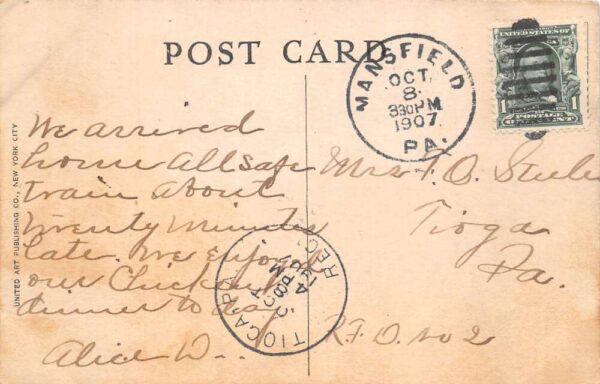 POST CARD
MANSFIELD
OCT.
8
830PM
1907
PA.
UNITED STATES OF
1 1
POSTAGE
UNITED ART PUBLISHING CO., NEW YORK CITY
We arrived
home all safe
train about
twenty minutes
late. We enjoyed
our Chicken
dinner to day
Alice W..
Mrs. F. O.
Tioga
Pa.
R.F.D. no 2
TIOGA PA.
REC'D